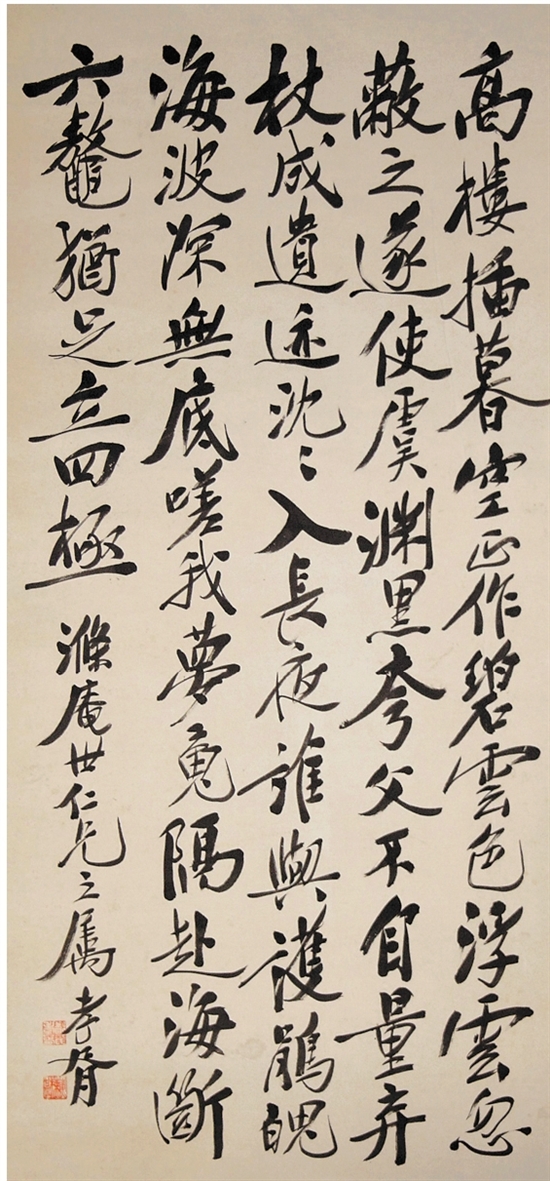 高樓插暮空正作碧雲色浮雲忽
蔽之遂使虞淵黑夸父不自量弃
杖成遺迹沈〻入長夜誰與護鵑魄
海波深無底嗟我夢魂隔赴海斷
六鼇猶足立四極
滌庵世仁兄之属 孝胥